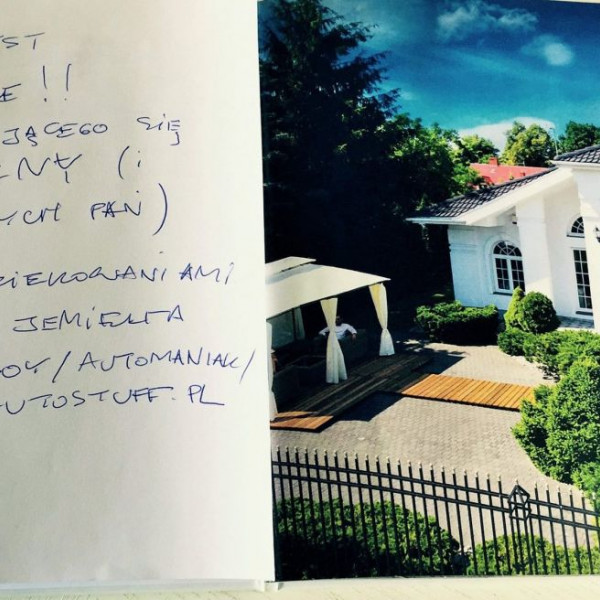 ST
E!!
JĄCEGO SIĘ
LNĄ (I
YCH PAŃ)
ZIĘKOWANIAMI
JEMIELTA
OY/AUTOMANIAK/
AUTOSTUFF.PL